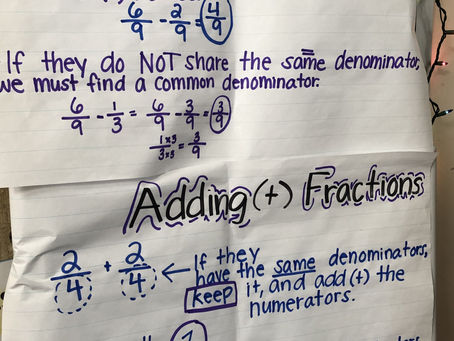 6/9 - 2/9 = 4/9
If they do NOT share the same denominator,
we must find a common denominator.
6/9 - 1/3 = 6/9 - 3/9 = 3/9
1×3/3×3 = 3/9
Adding (+) Fractions
2/4 + 2/4 ← If they
have the same denominators,
keep it, and add (+) the
numerators.